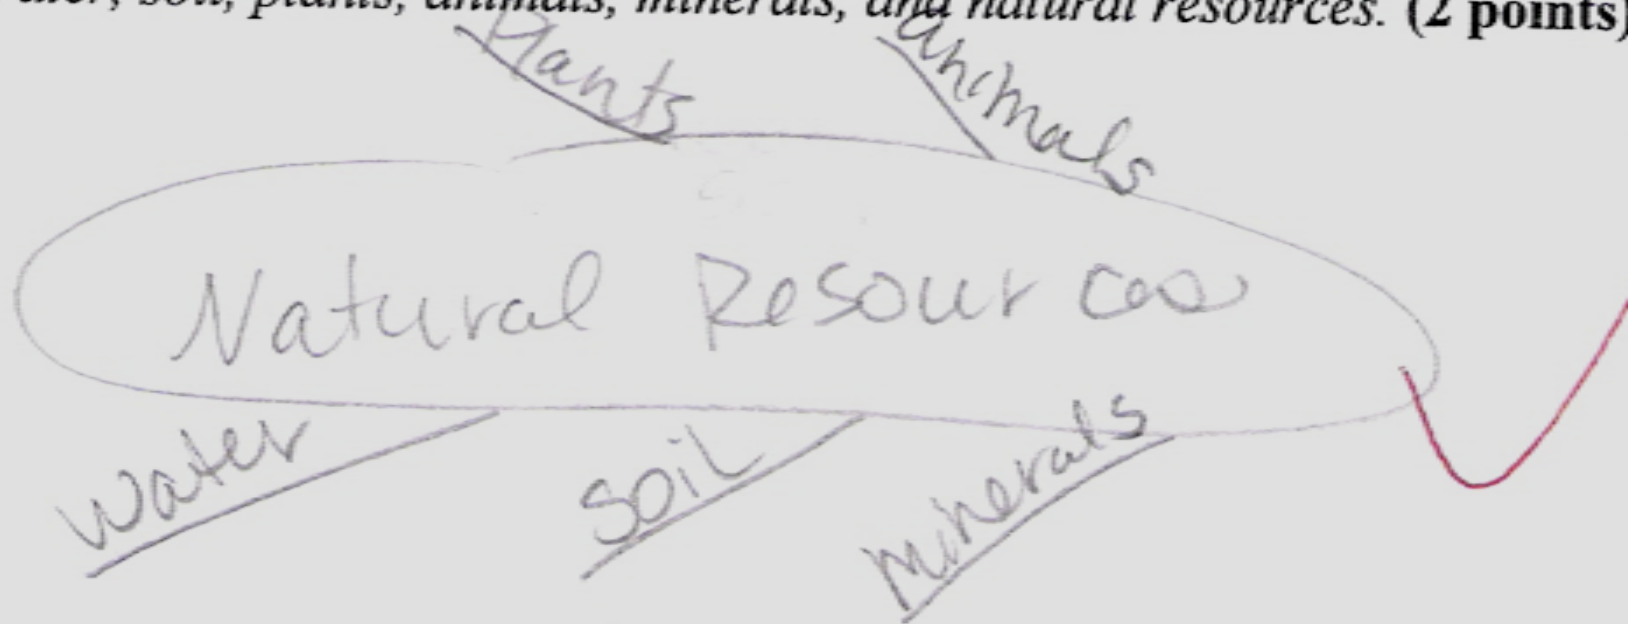 soil, plants, animals, minerals, and natural resources. (2 points)
Plants
animals
Natural Resources
Water
Soil
Minerals